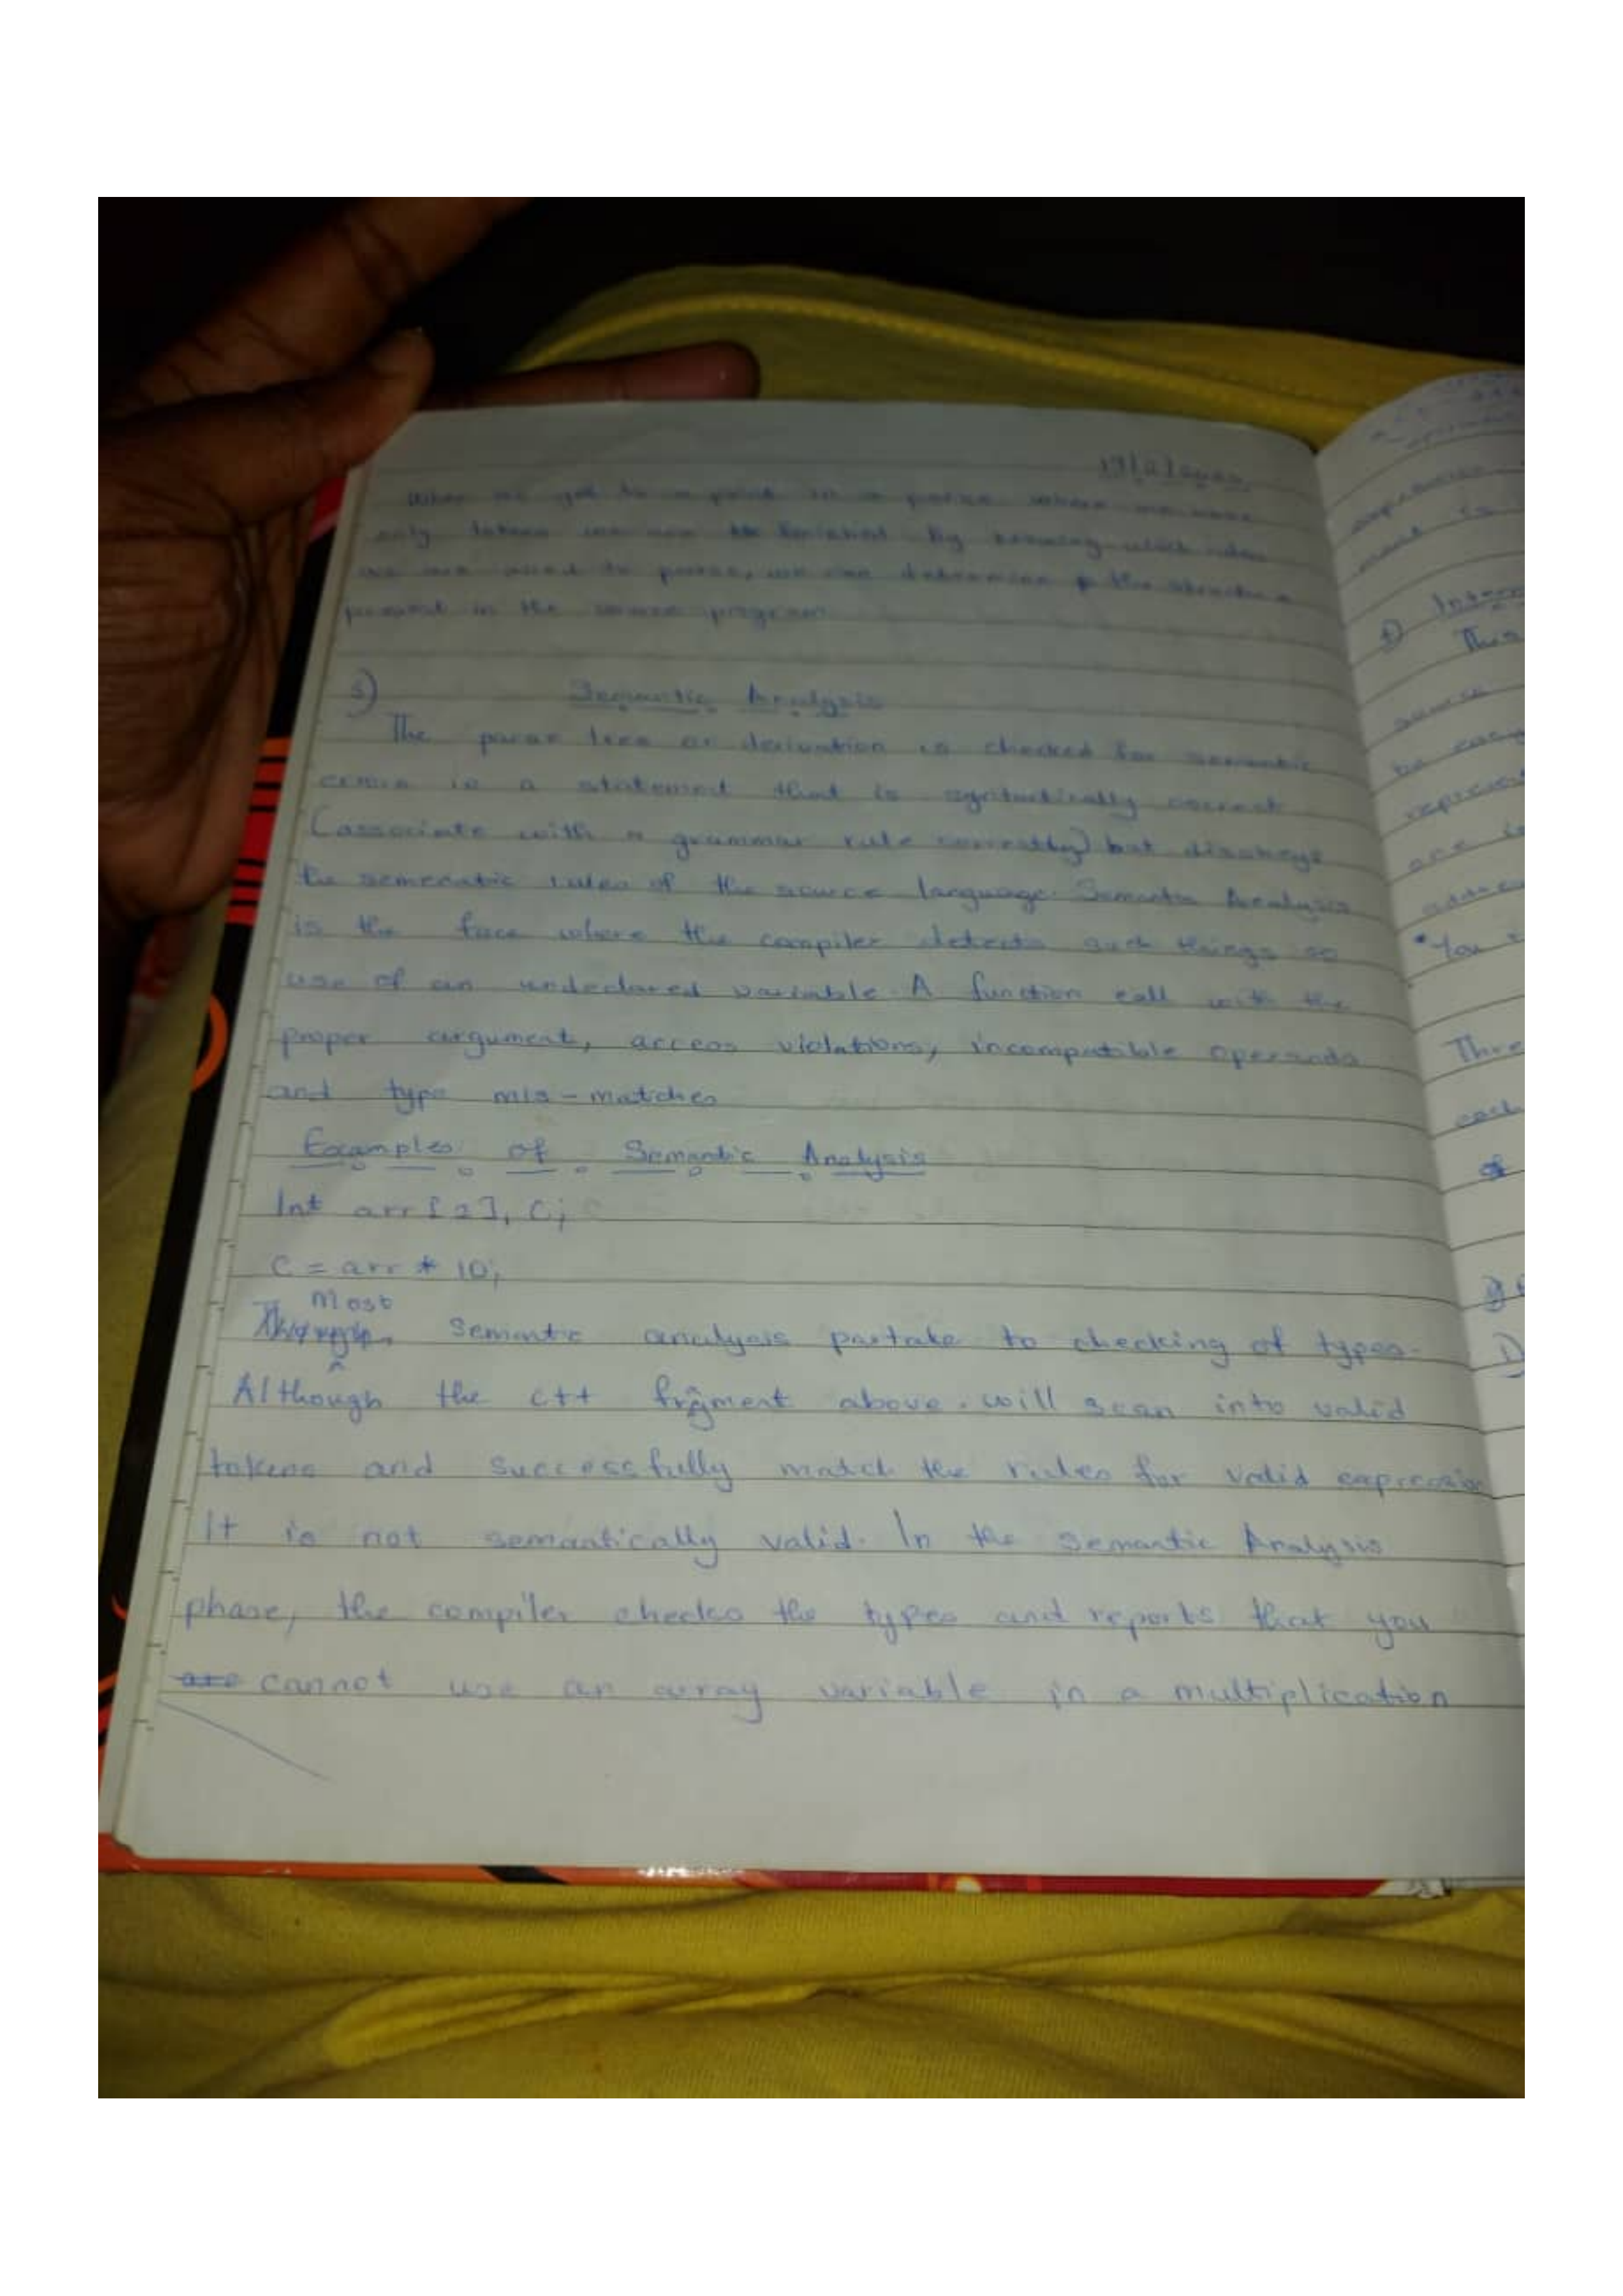 When we get to a point in a parse where we have
only tokens we are finished. By knowing which rules
we are used to parse, we can determine the structure
present in the source program.
3) Semantic Analysis
The parse tree or derivation is checked for semantic
is a statement that is syntactically correct
(associate with a grammar rule correctly) but disobeys
the semenatic rules of the source language. Semantic Analysis
is the face where the compiler detects such things as
use of an undeclared variable. A function call with the
proper argument, access violations, incompatible operands
and type mis-matches
Examples of Semantic Analysis
Int arr[2], C;
C = arr * 10;
Most
Semantic analysis partake to checking of types.
Although the c++ fragment above will scan into valid
tokens and successfully match the rules for valid expression
It is not semantically valid. In the semantic Analysis
phase, the compiler checks the types and reports that you
are cannot use an array variable in a multiplication
f) Interm
This
source
be easy
represent
are
*You
Thre
each
of
1)